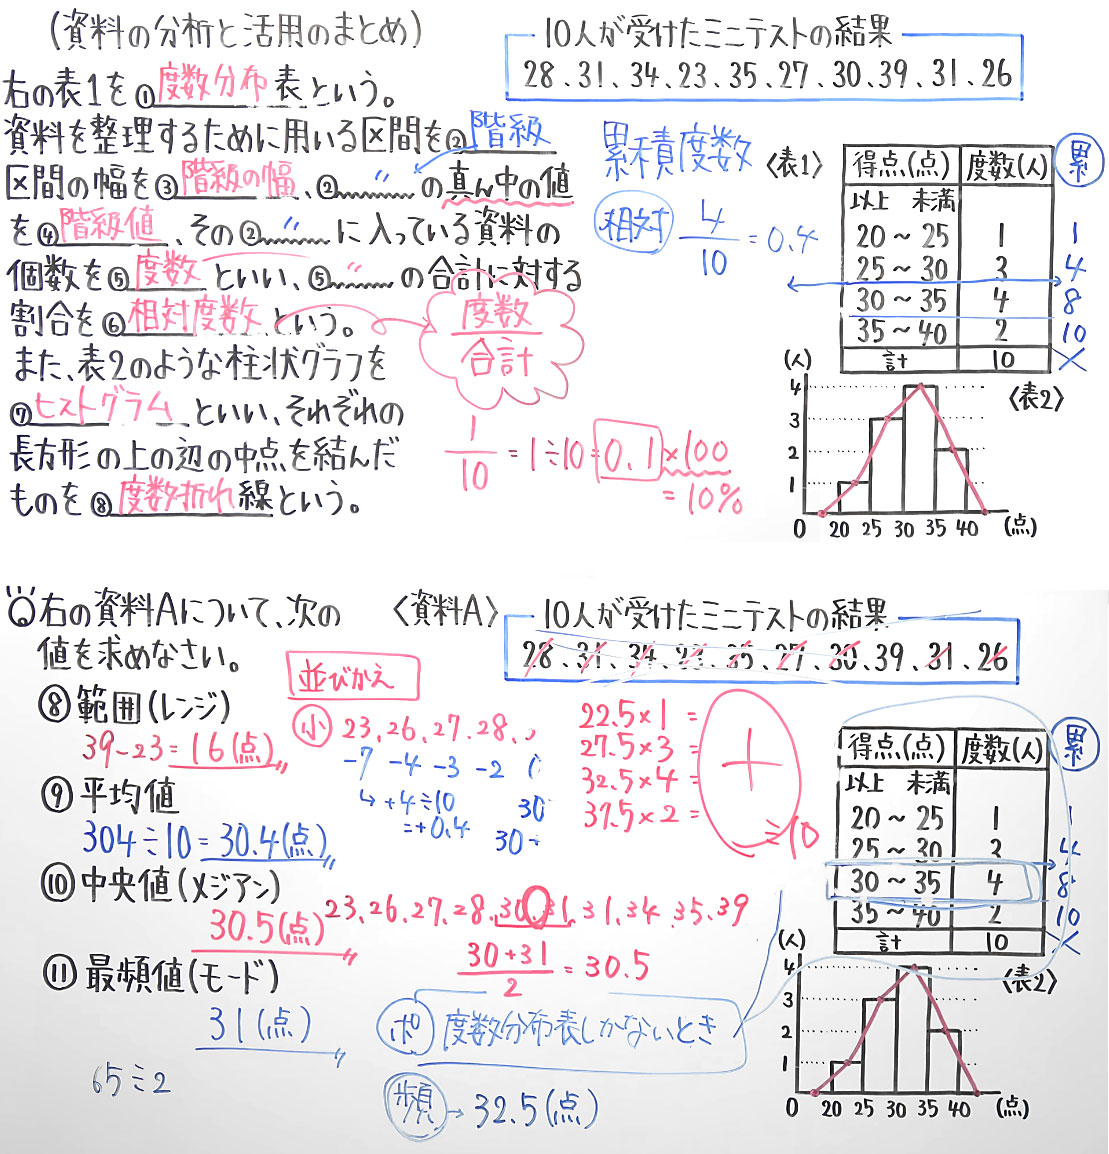 （資料の分析と活用のまとめ）
10人が受けたミニテストの結果
28、31、34、23、35、27、30、39、31、26
右の表1を①度数分布表という。
資料を整理するために用いる区間を②階級
区間の幅を③階級の幅、②〃の真ん中の値
を④階級値、その②〃に入っている資料の
個数を⑤度数といい、⑤〃の合計に対する
割合を⑥相対度数という。
また、表2のような柱状グラフを
⑦ヒストグラムといい、それぞれの
長方形の上の辺の中点を結んだ
ものを⑧度数折れ線という。
度数
合計
1/10 = 1÷10 = 0.1 ×100
= 10%
累積度数
相対 4/10 = 0.4
〈表1〉
得点(点) 度数(人) 累
以上 未満
20～25 1 1
25～30 3 4
30～35 4 8
35～40 2 10
計 10
(人)
〈表2〉
4
3
2
1
0 20 25 30 35 40 (点)
右の資料Aについて、次の
値を求めなさい。
〈資料A〉
10人が受けたミニテストの結果
28、31、34、23、35、27、30、39、31、26
並びかえ
小 23、26、27、28、
-7 -4 -3 -2
↳ +4÷10
=+0.4
30
30
22.5×1=
27.5×3=
32.5×4=
37.5×2=
+
÷10
⑧範囲(レンジ)
39-23=16(点)
⑨平均値
304÷10=30.4(点)
⑩中央値(メジアン)
30.5(点)
23、26、27、28、30、31、31、34、35、39
30+31/2 = 30.5
⑪最頻値(モード)
31(点)
65÷2
ポ 度数分布表しかないとき
頻→32.5(点)
得点(点) 度数(人) 累
以上 未満
20～25 1 1
25～30 3 4
30～35 4 8
35～40 2 10
計 10
(人)
〈表2〉
4
3
2
1
0 20 25 30 35 40 (点)